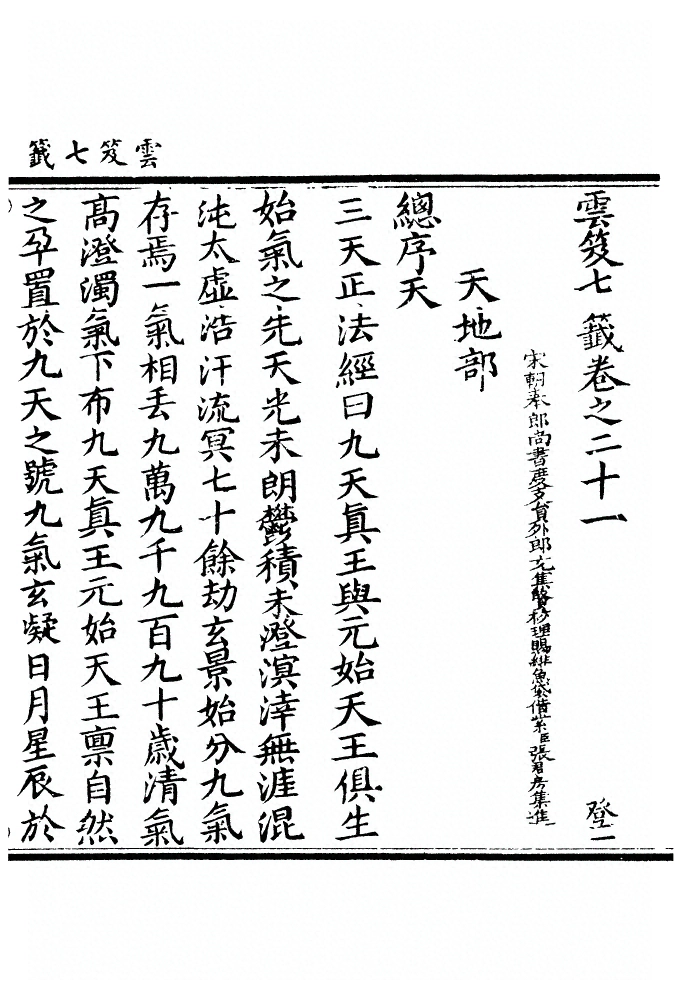 雲笈七籤
雲笈七籤卷之二十一
登一
宋朝奉郎尚書度支員外郎充集賢校理賜緋魚袋借紫臣張君房集進
天地部
總序天
三天正法經曰九天真王與元始天王俱生
始氣之先天光未朗鬱積未澄溟涬無涯混
沌太虛浩汗流冥七十餘劫玄景始分九氣
存焉一氣相去九萬九千九百九十歲清氣
高澄濁氣下布九天真王元始天王稟自然
之孕置於九天之號九氣玄凝日月星辰於